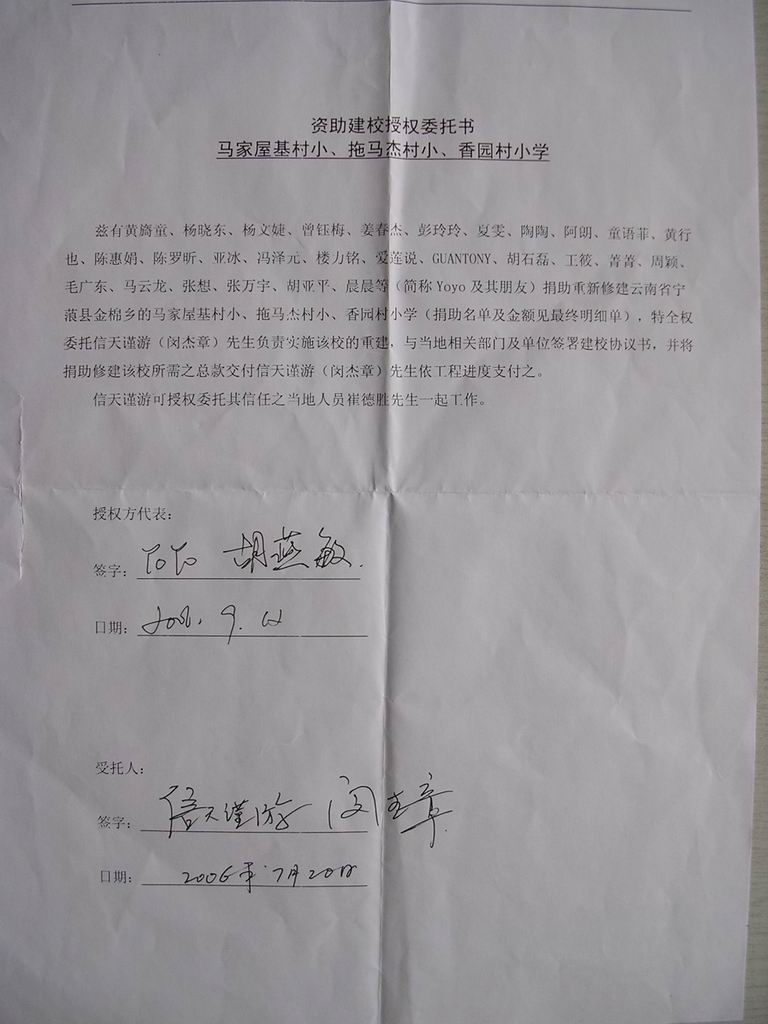 资助建校授权委托书
马家屋基村小、拖马杰村小、香园村小学
兹有黄旖童、杨晓东、杨文婕、曾钰梅、姜春杰、彭玲玲、夏雯、陶陶、阿朗、童语菲、黄行
也、陈惠娟、陈罗昕、亚冰、冯泽元、楼力铭、爱莲说、GUANTONY、胡石磊、工筱、菁菁、周颖、
毛广东、马云龙、张想、张万宇、胡亚平、晨晨等（简称 Yoyo 及其朋友）捐助重新修建云南省宁
蒗县金棉乡的马家屋基村小、拖马杰村小、香园村小学（捐助名单及金额见最终明细单），特全权
委托信天谨游（闵杰章）先生负责实施该校的重建，与当地相关部门及单位签署建校协议书，并将
捐助修建该校所需之总款交付信天谨游（闵杰章）先生依工程进度支付之。
信天谨游可授权委托其信任之当地人员崔德胜先生一起工作。
授权方代表：
签字：YoYo 胡燕敏.
日期：
受托人：
签字：信天谨游 闵杰章
日期：2006年7月20日